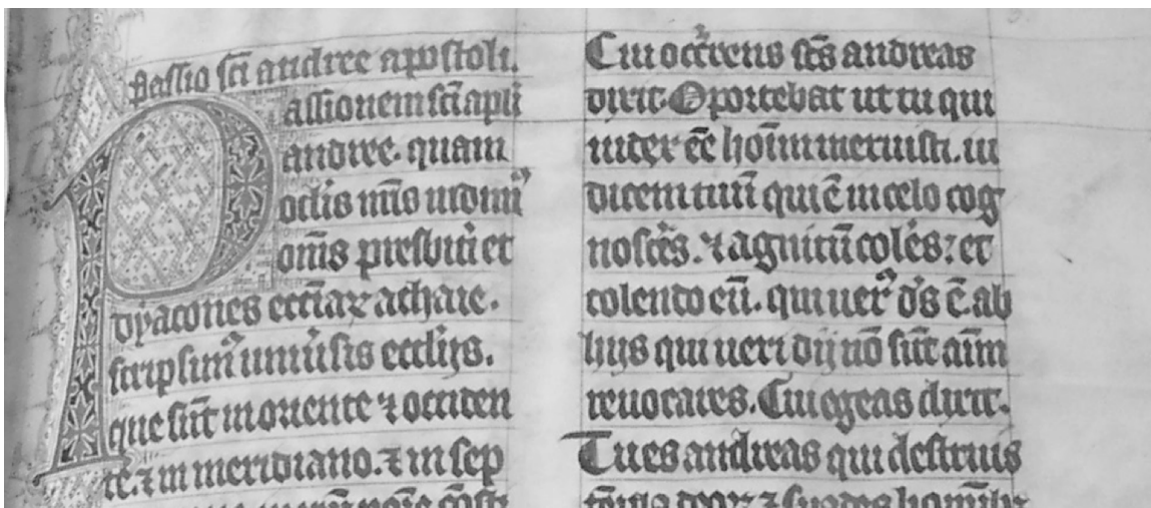 Passio sc̄i andree apostoli.
Passionem sc̄i apl̄i
andree. quam
oclis nr̄is uidim᷒
om̄s presbit̄i et
dyacones eccl̄iaꝝ achaie.
scripsim᷒ uniu̾sis eccl̄ijs.
que sūt in oriente ⁊ occiden
te. ⁊ in meridiano. ⁊ in sep
Cui occ̄rens sc̄s andreas
dixit. Oportebat ut tu qui
iudex ēē hoīm meruisti. iu
dicem tuū qui ē in celo cog
nosc̄es. ⁊ agnitū col̄es: et
colendo eū. qui uer᷒ d̄s ē. ab
hijs qui ueri dij nō sūt aīm
reuocares. Cui egeas dixit.
Tu es andreas qui destruis
deoꝝ ⁊ suades